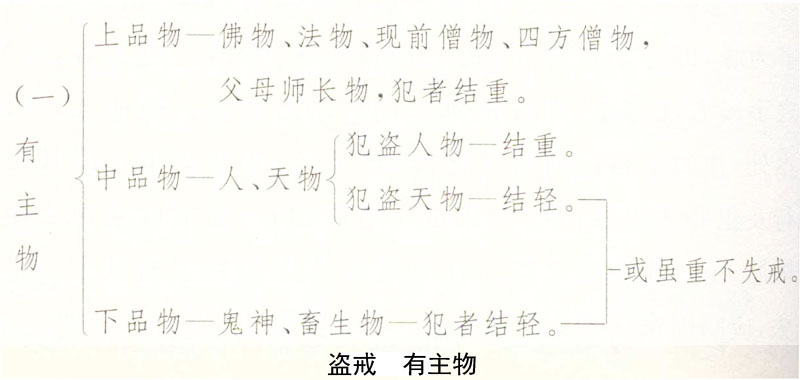 上品物—佛物、法物、现前僧物、四方僧物，
父母师长物，犯者结重。
（一）有主物
中品物—人、天物
犯盗人物—结重。
犯盗天物—结轻。
或虽重不失戒。
下品物—鬼神、畜生物—犯者结轻。
盗戒　有主物